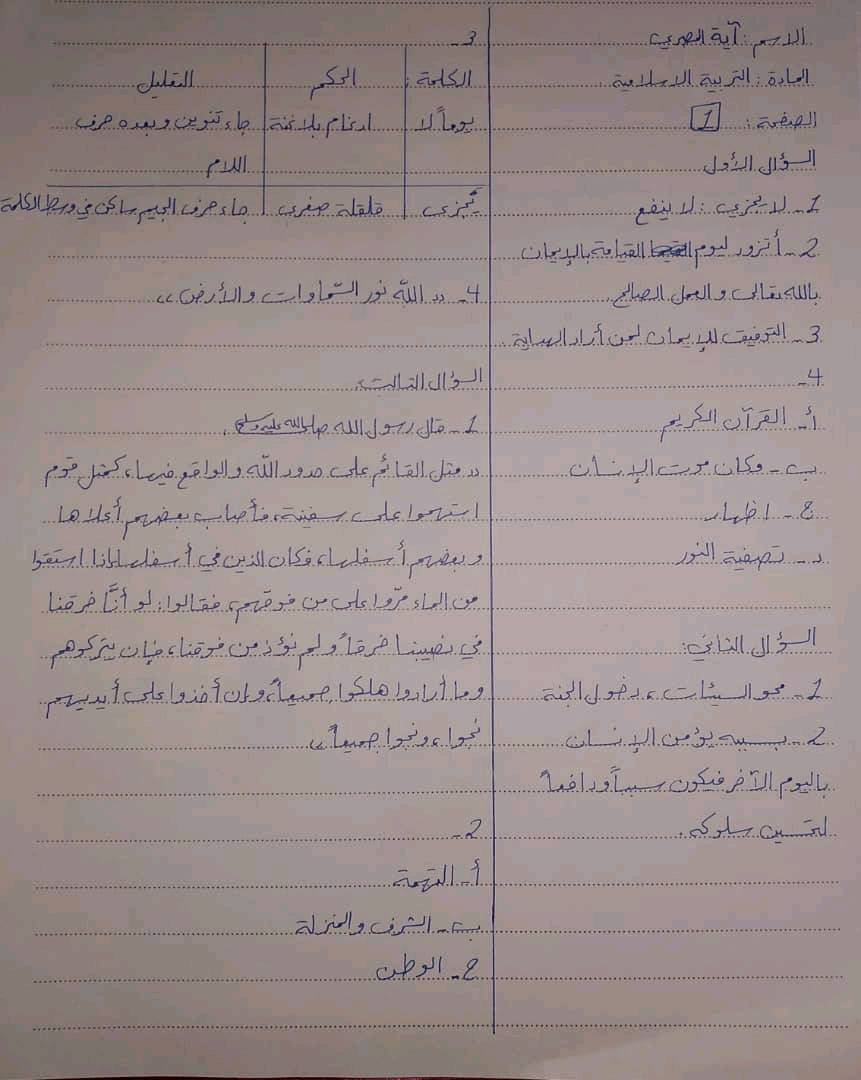 الاسم : آية المصري
المادة : التربية الاسلامية .
الصفحة : 1
السؤال الأول
1- لا يجزي : لا ينفع
2- أتزود ليوم القيامة بالإيمان
بالله تعالى والعمل الصالح
3- التوفيق للإيمان لمن أراد الهداية .
4-
أ- القرآن الكريم
ب- مكان موت الإنسان
ج- اظهار
د- تصفية النور
السؤال الثاني:
1- محو السيئات ، دخول الجنة
2- بسببه يؤمن الإنسان
باليوم الآخر فيكون سبباً ودافعاً
لتحسين سلوكه .
3-
الكلمة : الحكم التعليل
يوماً لا ادغام بلا غنة جاء تنوين وبعده حرف
اللام
يَجْزي قلقلة صغرى جاء حرف الجيم ساكن في وسط الكلمة
4- (( اللّه نور السّماوات والأرض ))
السؤال الثالث:
1- قال رسول الله صلى الله عليه وسلم .
(( مثل القائم على حدود اللّه والواقع فيها ، كمثل قوم
استهموا على سفينة ، فأصاب بعضهم أعلاها
وبعضهم أسفلها ، فكان الذين في أسفلها إذا استقوا
من الماء مرّوا على من فوقهم ، فقالوا : لو أنَّا خرقنا
في نصيبنا خرقاً ولم نؤذ من فوقنا ، فإن يتركوهم
وما أرادوا هلكوا جميعاً ، وإن أخذوا على أيديهم
نجوا ، ونجوا جميعاً ))
2-
أ- التهمة
ب- الشرف والمنزلة
ج- الوطن